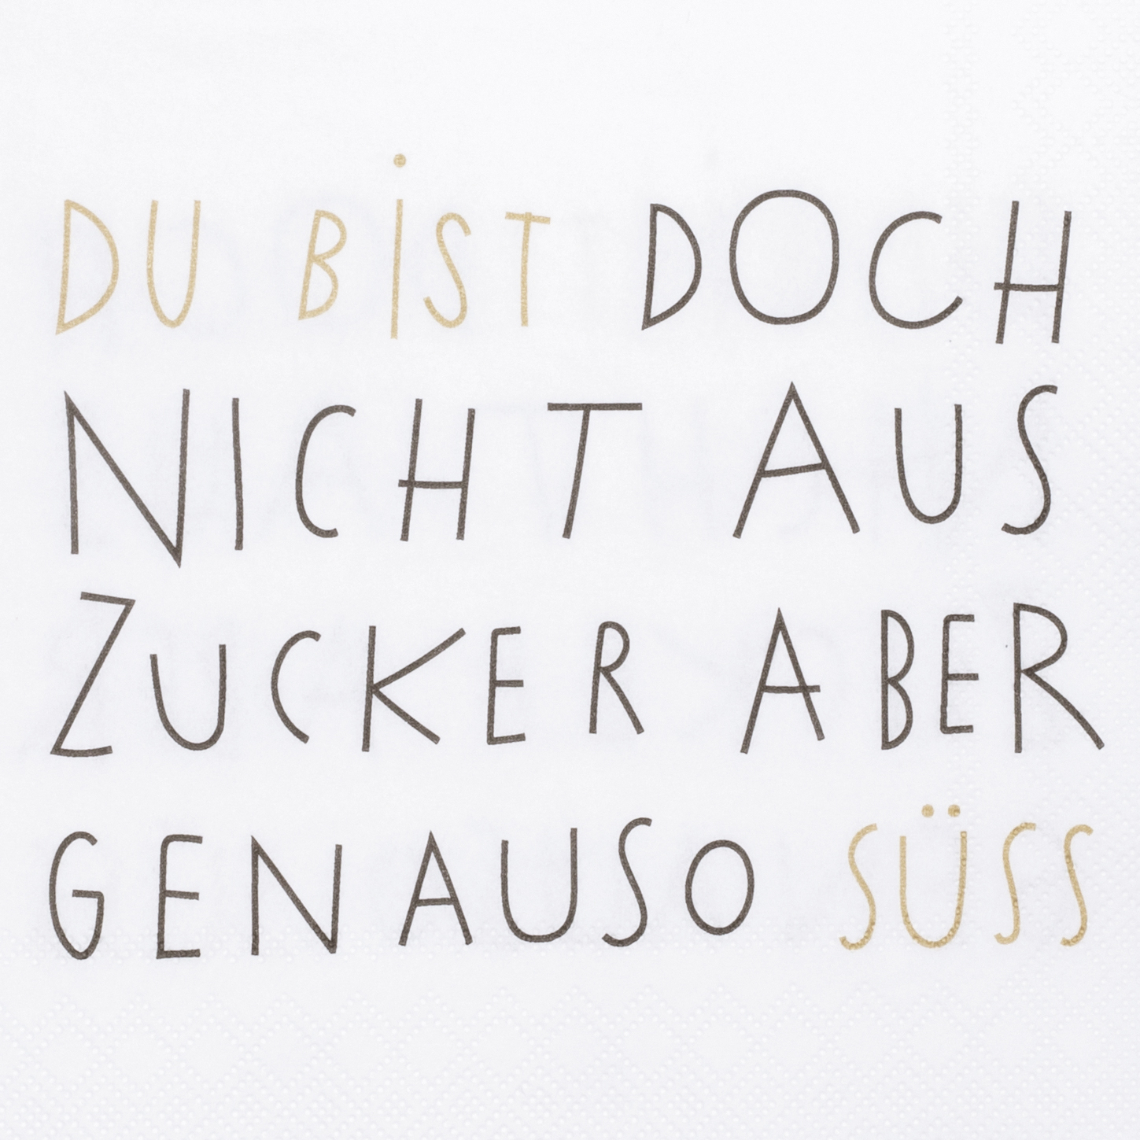 DU BIST DOCH
NICHT AUS
ZUCKER ABER
GENAUSO SÜSS